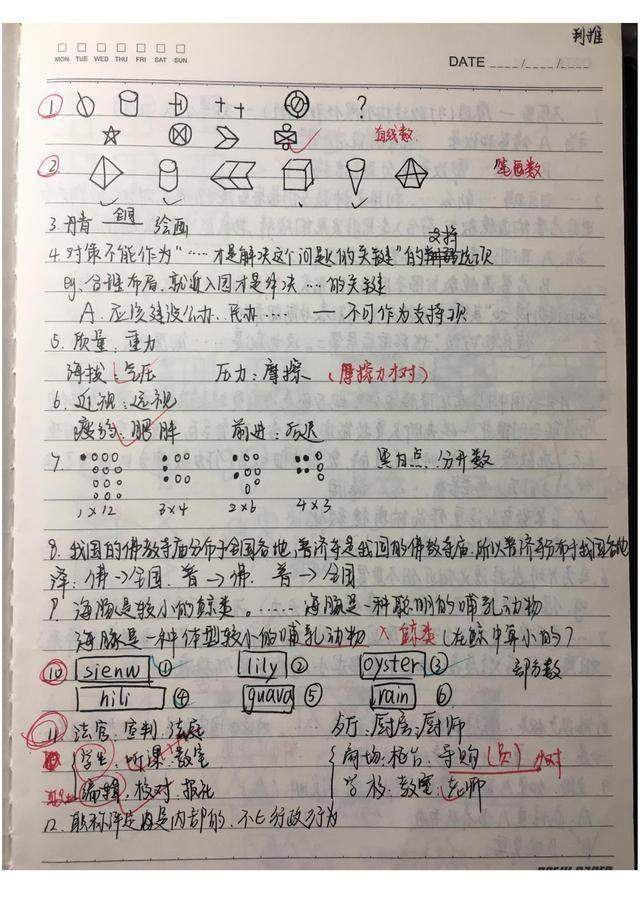 判推
MON TUE WED THU FRI SAT SUN
DATE ___/___/___
① ?
直线数
② 笔画数
3. 丹青 绘画
4. 对策不能作为“……才是解决这个问题的关键”的支持选项
eg. 合理布局、就近入园才是解决…的关键
A. 应该建设公办、民办…… — 不可作为支持项
5. 质量：重力
海拔：气压 压力：摩擦（摩擦力才对）
6. 近视：远视
肥胖 前进：后退
7. 黑白点，分开数
1×12 3×4 2×6 4×3
8. 我国的佛教寺庙分布于全国各地，普济寺是我国的佛教寺庙，所以普济寺分布于我国各地
译：佛→全国．普→佛．普→全国
9. 海豚是较小的鲸类。…… 海豚是一种聪明的哺乳动物
海豚是一种体型较小的哺乳动物 × 鲸类（在鲸中算小的）
⑩ sienw ① lily ② oyster ③ 部分数
hili ④ guava ⑤ rain ⑥
11. 法官：宣判：法庭 厨房：厨师
学生：听课：教室 商场：柜台：导购（员）才对
编辑：校对：报社 学校：教室：老师
12. 职称评定是内部的，不是行政行为